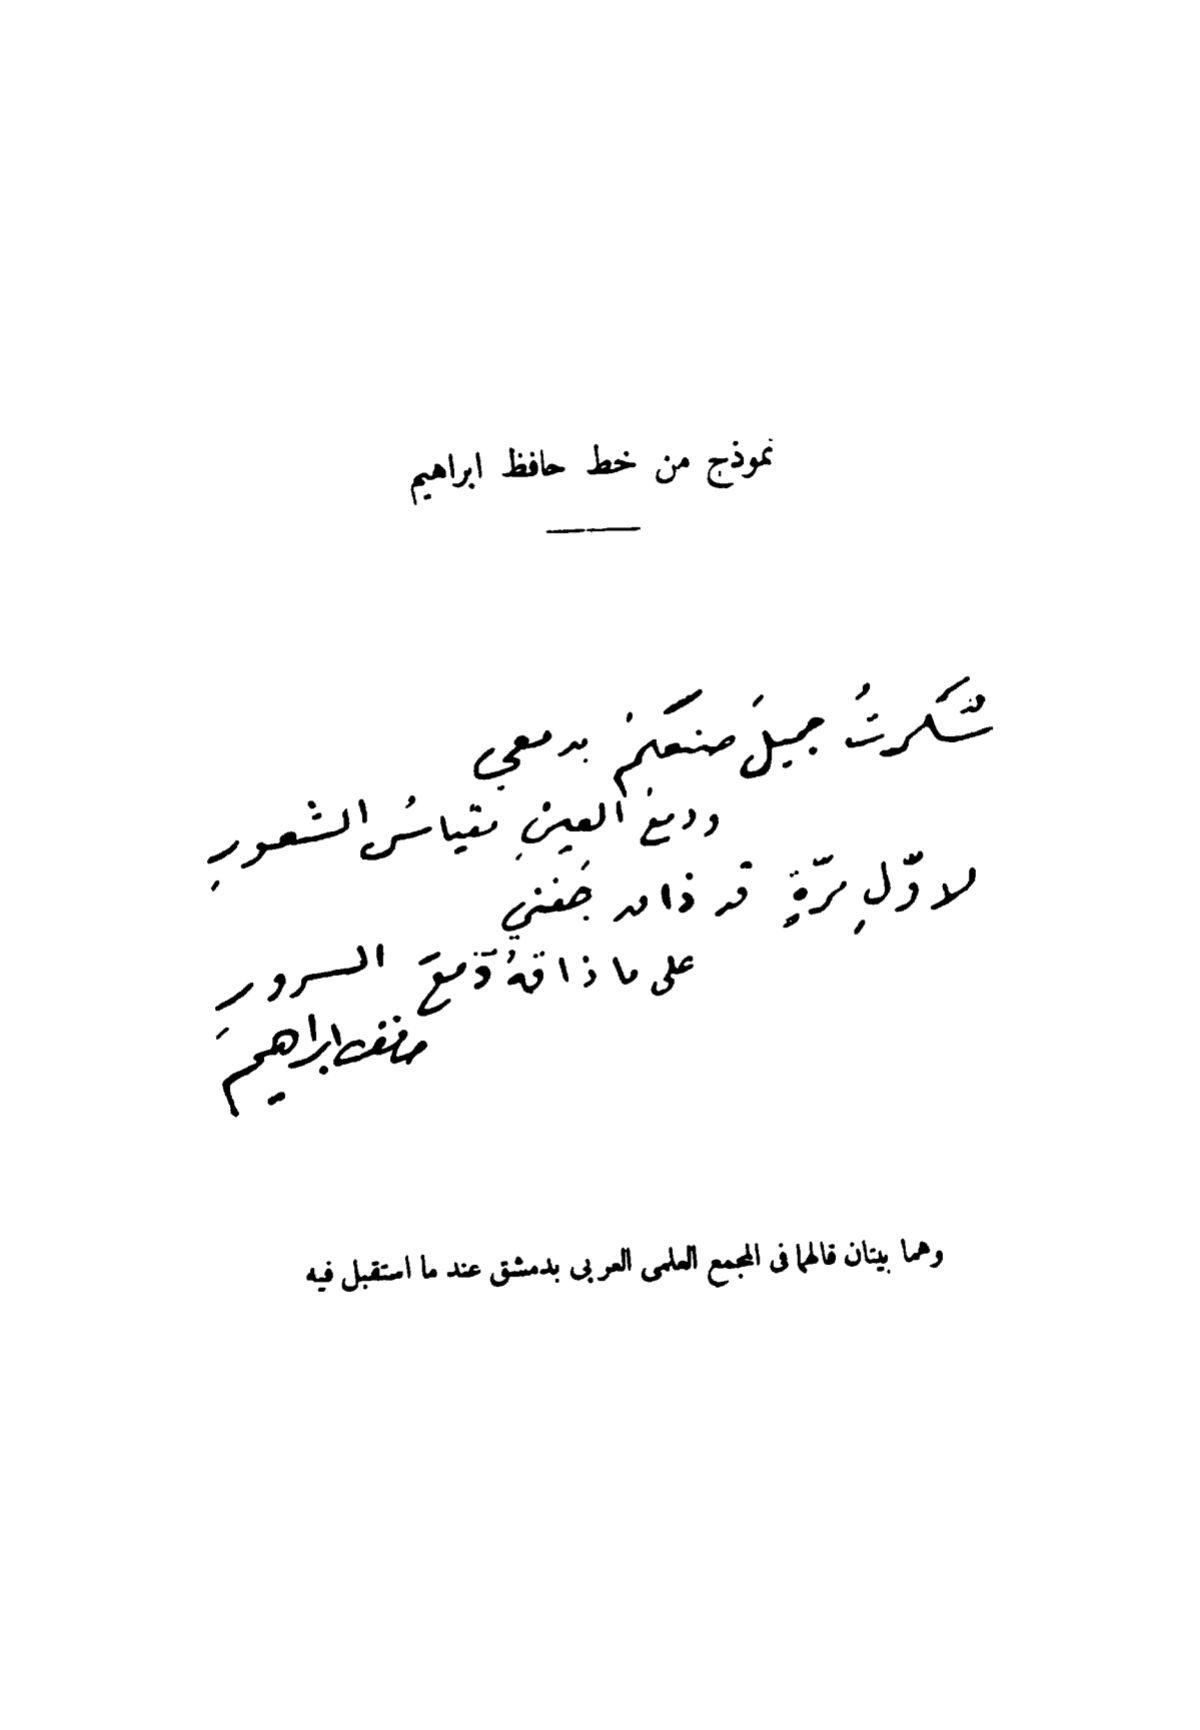 نموذج من خط حافظ ابراهيم
شَكرتُ جميلَ صنعكمُ بدمعي
ودمعُ العينِ مقياسُ الشّعورِ
لاوّلِ مرّةٍ قد ذاق جَفني
على ما ذاقهُ دَمعَ السرورِ
حافظ ابراهيم
وهما بيتان قالهما فى المجمع العلمى العربى بدمشق عند ما استقبل فيه